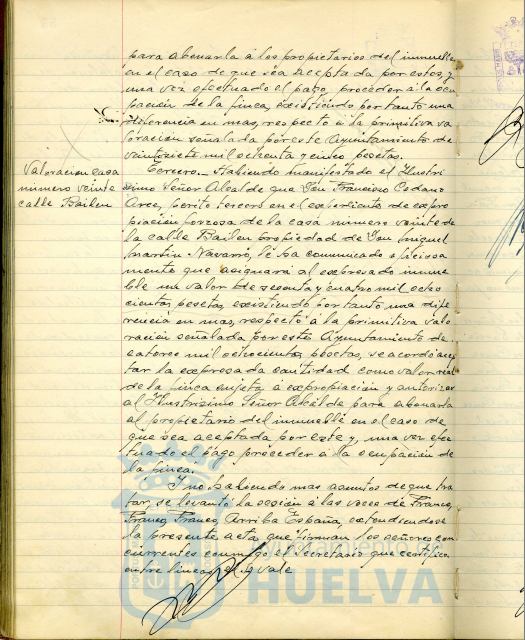 para abonarla á los propietarios del inmueble
en el caso de que sea aceptada por estos, y
una vez efectuado el pago, proceder á la ocu
pacion de la finca, existiendo por tanto una
diferencia en mas, respecto á la primitiva va
loracion señalada por este Ayuntamiento de
veintisiete mil ochenta y cinco pesetas.
Valoracion casa
número veinte
calle Bailen
Tercero.- Habiendo manifestado el Ilustri
simo Señor Alcalde que Don Francisco Codano
Arce, perito tercero en el expediente de expro
piación forzosa de la casa número veinte de
la calle Bailen propiedad de Don Miguel
Martin Navarro, le ha comunicado oficiosa
mente que asignará al expresado inmue
ble un valor de sesenta y cuatro mil ocho
cientas pesetas, existiendo por tanto una dife
rencia en mas, respecto á la primitiva valo
racion señalada por este Ayuntamiento de
catorce mil ochocientas pesetas, se acordó acep
tar la expresada cantidad como valor real
de la finca sujeta á expropiacion y autorizar
al Ilustrisimo Señor Alcalde para abonarla
al propietario del inmueble en el caso de
que sea aceptada por este y, una vez efec
tuado el pago proceder á la ocupacion de
la finca.
Y no habiendo mas asuntos de que tra
tar, se levantó la sesión á las voces de Franco,
Franco, Franco, Arriba España, extendiendose
la presente acta que firman los señores con
currentes conmigo el Secretario que certifico
entre lineas el vale
HUELVA